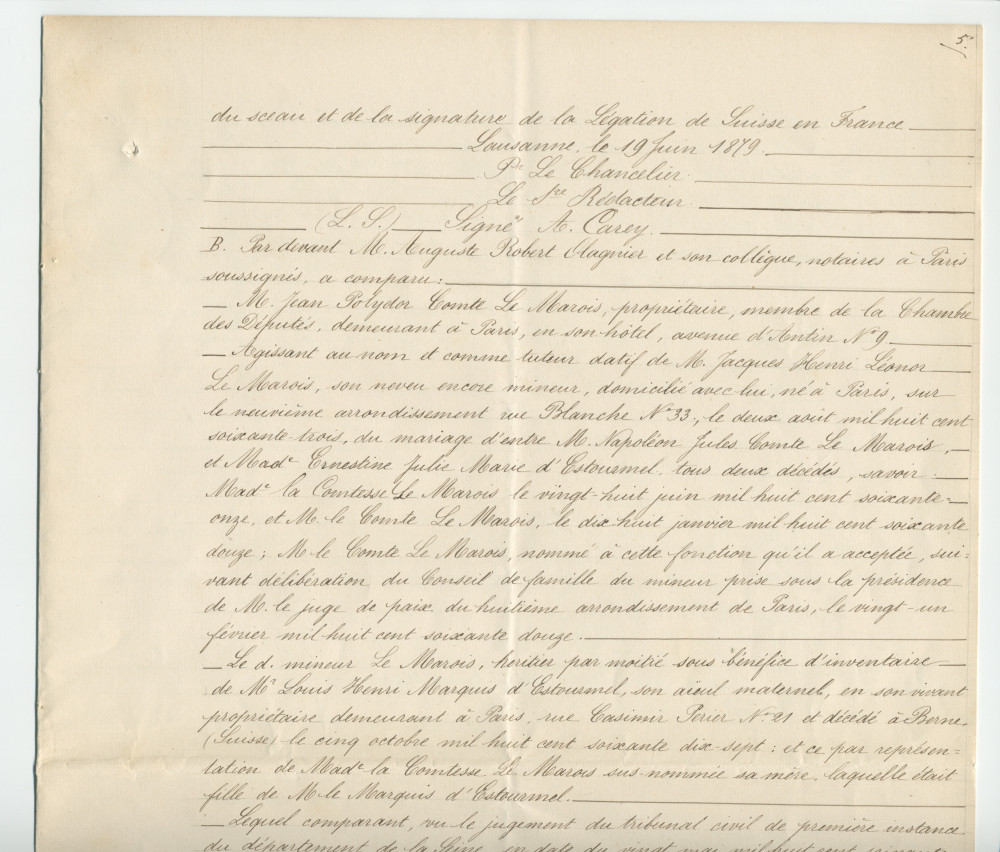 5.
du sceau et de la signature de la Légation de Suisse en France
Lausanne, le 19 Juin 1879.
Pr Le Chancelier
Le Sre Rédacteur.
(L. S.) Signé" A. Carey.
B. Par devant M. Auguste Robert Clagnier et son collègue, notaires à Paris
soussignés, a comparu:
— M. Jean Polydor Comte Le Marois, propriétaire, membre de la Chambre
des Députés, demeurant à Paris, en son hôtel, avenue d'Antin No 9.
— Agissant au nom et comme tuteur datif de M. Jacques Henri Léonor
Le Marois, son neveu encore mineur, domicilié avec lui, né à Paris, sur
le neuvième arrondissement rue Blanche No 33, le deux août mil huit cent
soixante-trois, du mariage d'entre M. Napoléon Jules Comte Le Marois,
et Made Ernestine Julie Marie d'Estourmel, tous deux décédés, savoir:
Made la Comtesse Le Marois le vingt-huit juin mil huit cent soixante-
onze, et M. le Comte Le Marois, le dix huit janvier mil huit cent soixante
douze; M. le Comte Le Marois, nommé à cette fonction qu'il a acceptée, sui-
vant délibération du Conseil de famille du mineur prise sous la présidence
de M. le juge de paix du huitième arrondissement de Paris, le vingt-un
février mil huit cent soixante douze.
— Le d. mineur Le Marois, héritier par moitié sous bénéfice d'inventaire
de Mr Louis Henri Marquis d'Estourmel, son aïeul maternel, en son vivant
propriétaire demeurant à Paris, rue Casimir Perier No 21 et décédé à Berne
(Suisse) le cinq octobre mil huit cent soixante dix-sept: et ce par représen-
tation de Made la Comtesse Le Marois sus-nommée sa mère, laquelle était
fille de M. le Marquis d'Estourmel.
— Lequel comparant, vu le jugement du tribunal civil de première instance
du département de la Seine, en date du vingt mai mil huit cent soixante